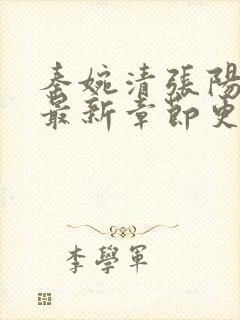 秦婉清張陽
最新章節更
李學軍